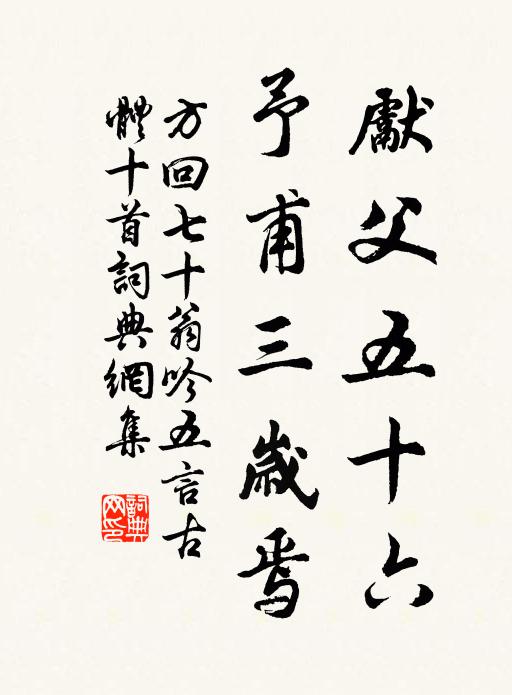 獻父五十六
予甫三歲焉
方回七十翁吟五言古
體十首詞典網集
詞典網印